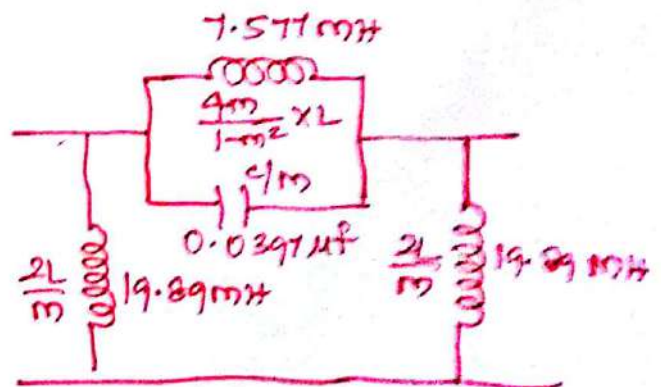 7.577mH
4m/1-m² x L
C/m
0.0397μf
2L/m 19.89mH
2L/m 19.89mH